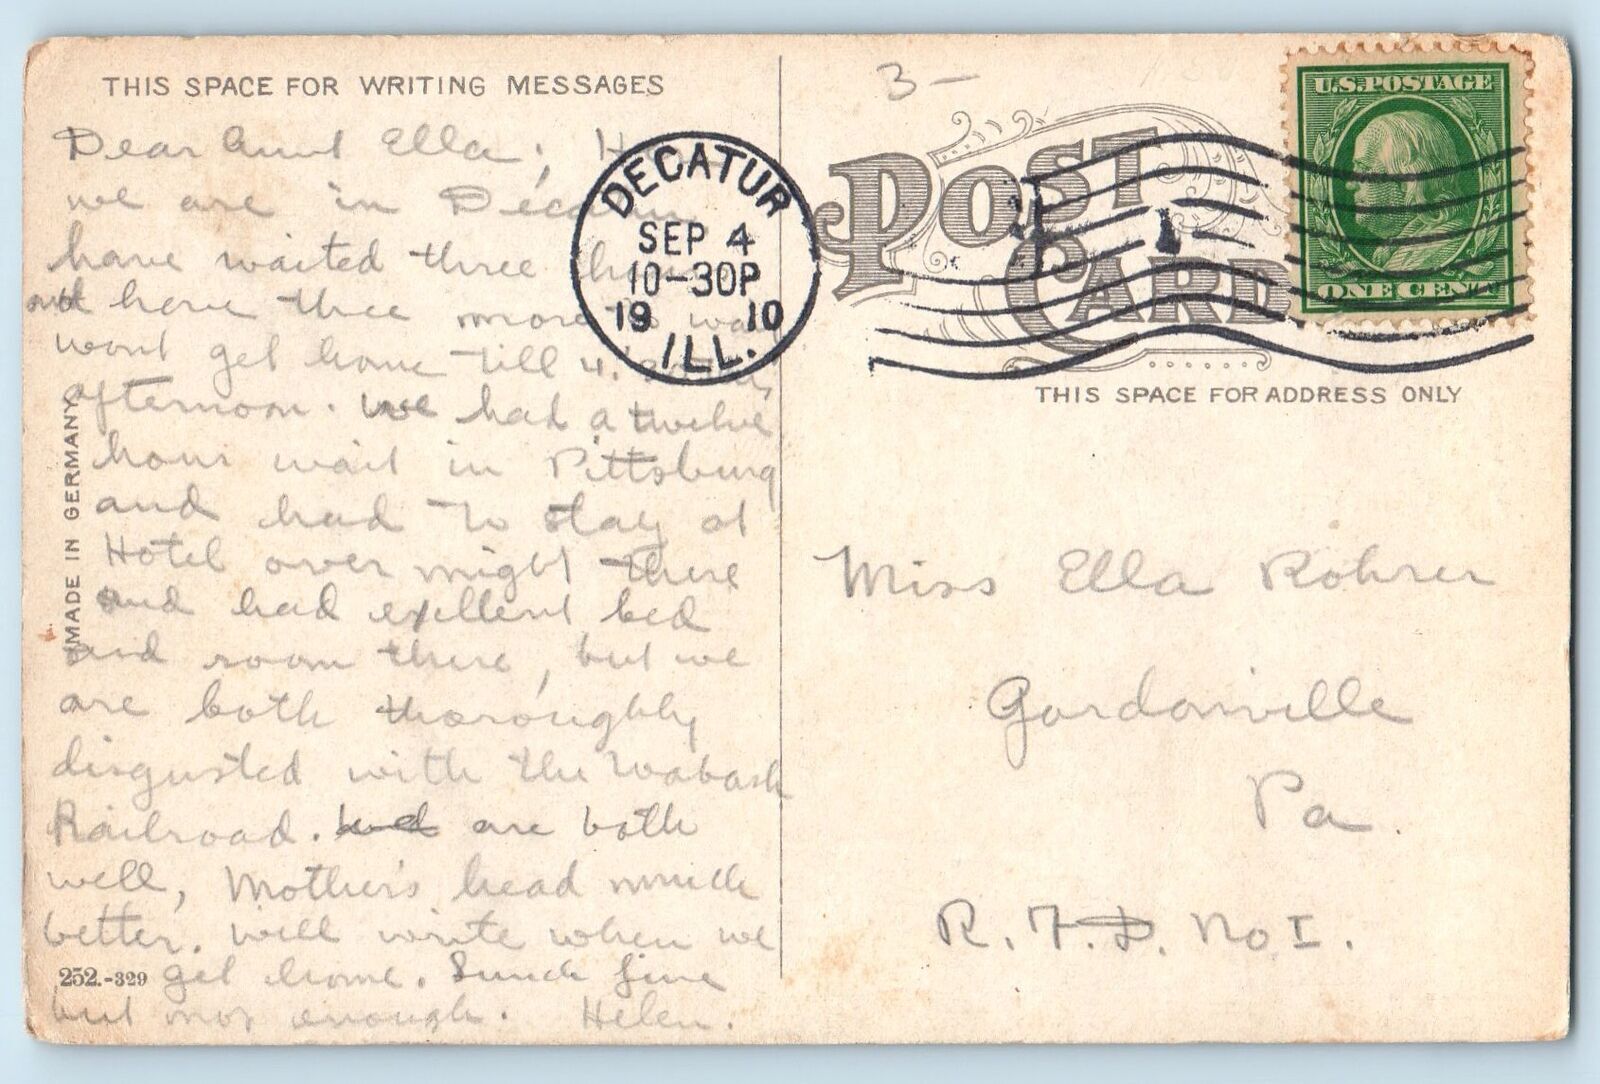 THIS SPACE FOR WRITING MESSAGES
Dear Aunt Ella; Here
we are in Decatur
have waited three hours
and have three more to wait
wont get home till 4.
afternoon. We had a twelve
hour wait in Pittsburg
and had to stay at
Hotel over night there
and had exellent bed
and room there, but we
are both thoroughly
disgusted with the Wabash
Railroad. are both
well, Mother's head much
better. Will write when we
get home. Lunch fine
but not enough. Helen.
MADE IN GERMANY
252.-329
DECATUR
SEP 4
10-30P
1910
ILL.
3-
POST
CARD
1
U.S. POSTAGE
ONE CENT
THIS SPACE FOR ADDRESS ONLY
Miss Ella Rohrer
Gordonville
Pa.
R.F.D. No I.